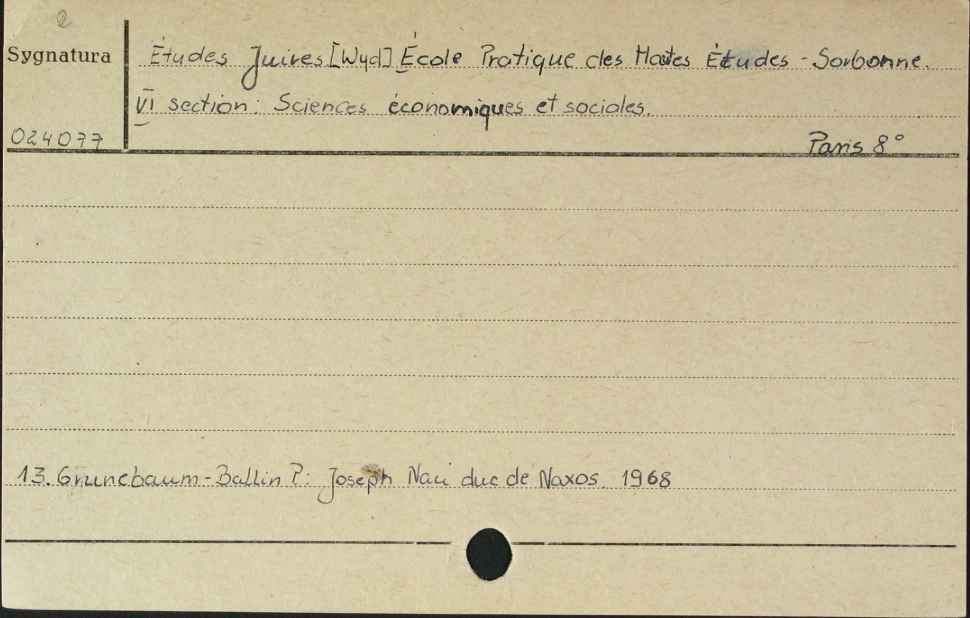 2
Sygnatura
Études Juives [Wyd] École Pratique des Hautes Études - Sorbonne.
VI section: Sciences économiques et sociales.
024077
Paris 8°
13. Grunebaum-Ballin P.: Joseph Naci duc de Naxos. 1968